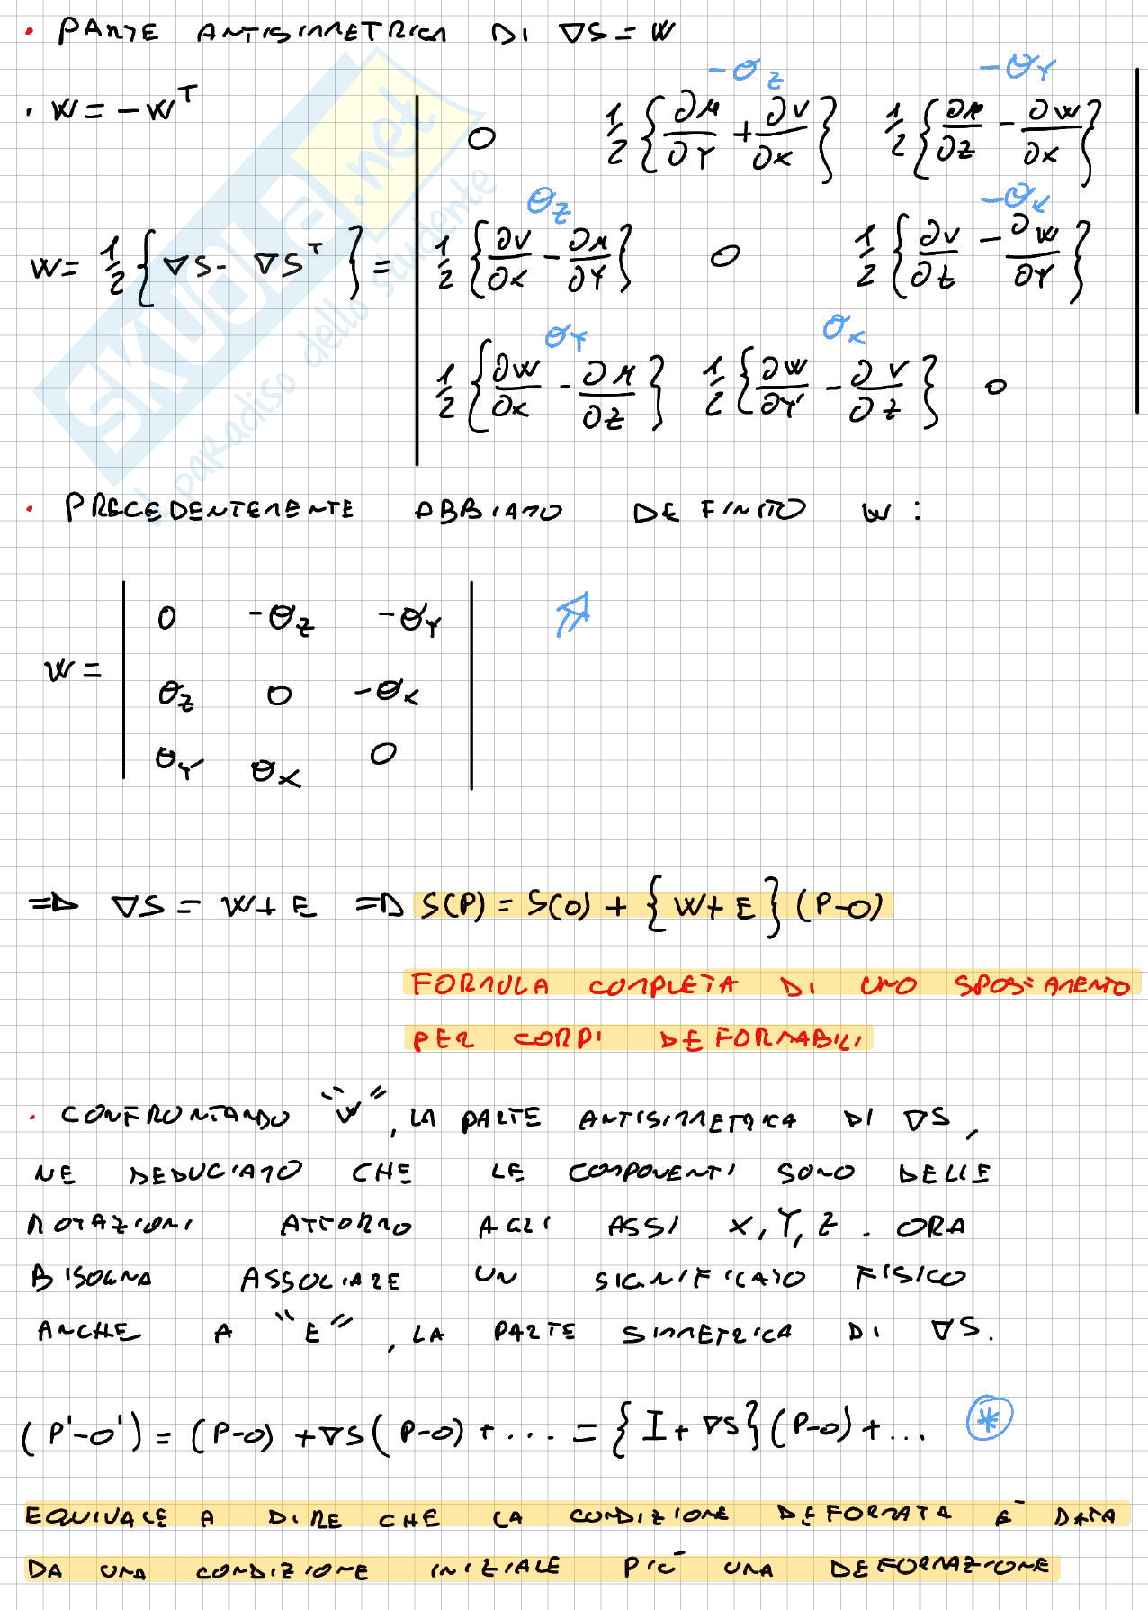 • PARTE ANTISIMMETRICA DI ∇S = W
• W = -Wᵀ
-θz -θY
0 1/2 {∂μ/∂Y + ∂V/∂X} 1/2 {∂μ/∂Z - ∂W/∂X}
θz -θx
W = 1/2 {∇S - ∇Sᵀ} = 1/2 {∂V/∂X - ∂μ/∂Y} 0 1/2 {∂V/∂Z - ∂W/∂Y}
θY θx
1/2 {∂W/∂X - ∂μ/∂Z} 1/2 {∂W/∂Y - ∂V/∂Z} 0
SKUOLA.net
il paradiso dello studente
• PRECEDENTEMENTE ABBIAMO DEFINITO W :
0 -θz -θY
W = θz 0 -θx
θY θx 0
⇒ ∇S = W + E ⇒ S(P) = S(O) + {W + E} (P-O)
FORMULA COMPLETA DI UNO SPOSTAMENTO
PER CORPI DEFORMABILI
• CONFRONTANDO "W", LA PARTE ANTISIMMETRICA DI ∇S,
NE DEDUCIAMO CHE LE COMPONENTI SONO DELLE
ROTAZIONI ATTORNO AGLI ASSI X, Y, Z. ORA
BISOGNA ASSOCIARE UN SIGNIFICATO FISICO
ANCHE A "E", LA PARTE SIMMETRICA DI ∇S.
(P'-O') = (P-O) + ∇S (P-O) + ... = {I + ∇S} (P-O) + ... *
EQUIVALE A DIRE CHE LA CONDIZIONE DEFORMATA È DATA
DA UNA CONDIZIONE INIZIALE PIÙ UNA DEFORMAZIONE